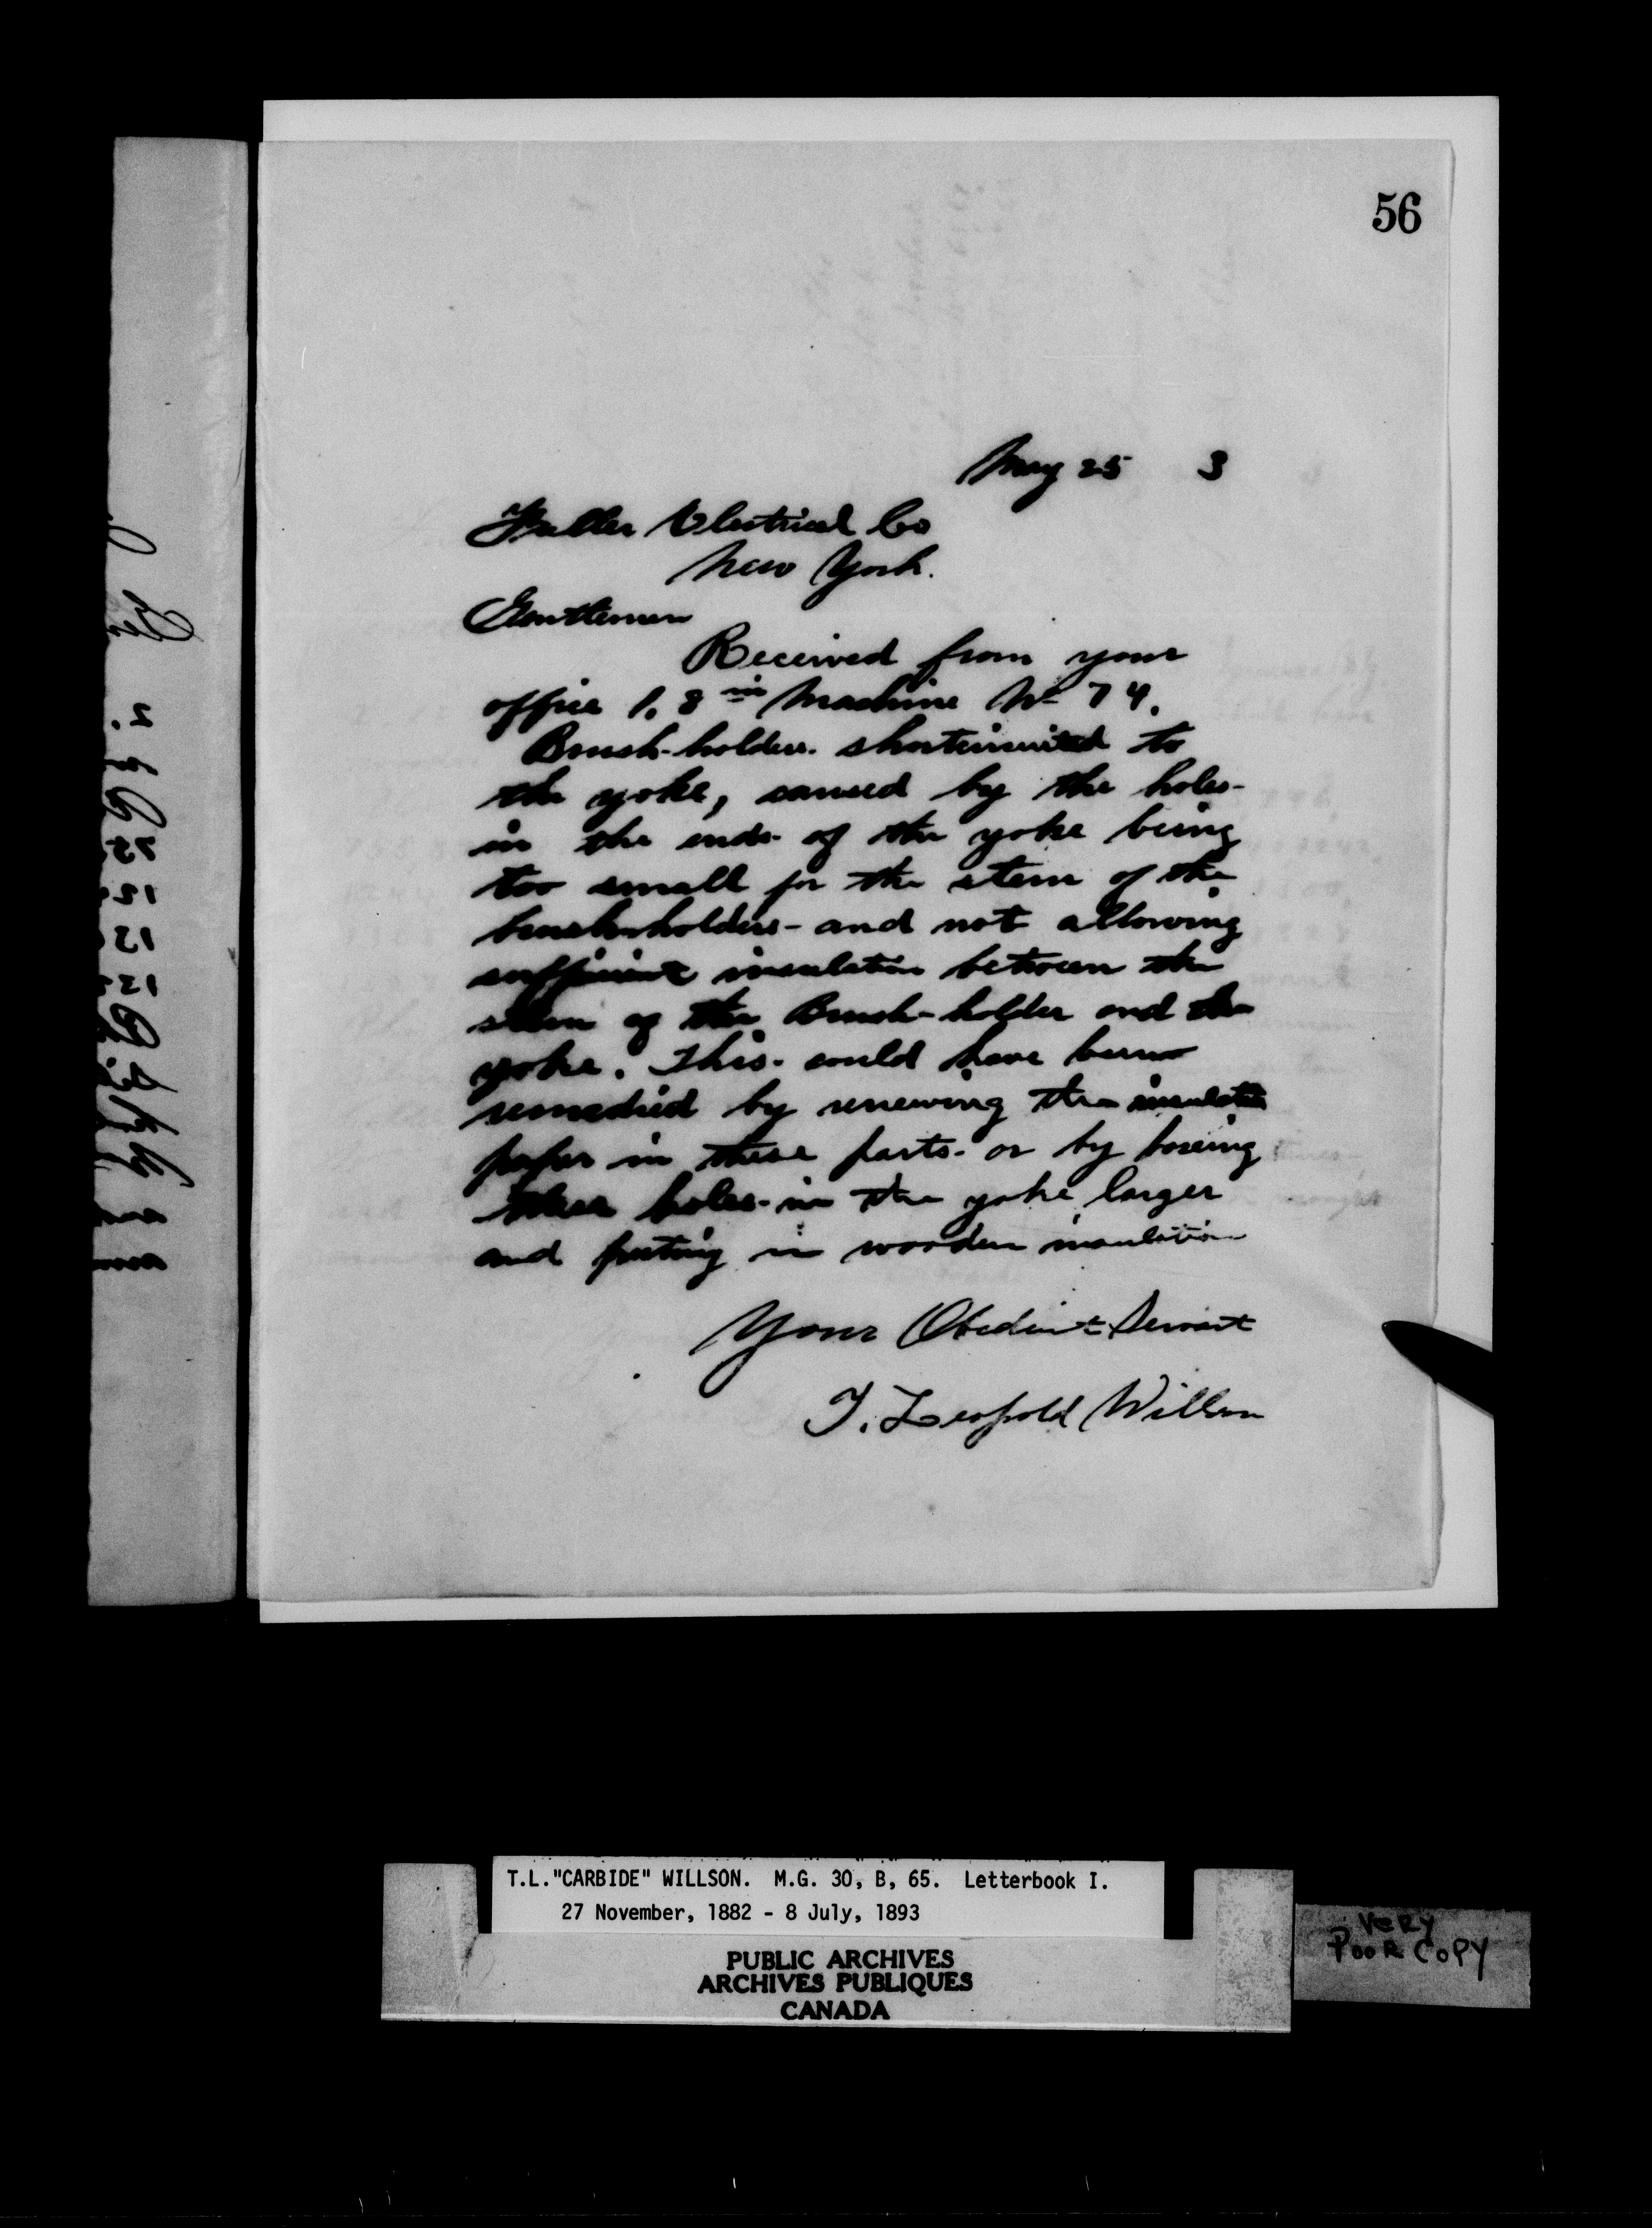 56
May 25 3
Fuller Electrical Co
New York.
Gentlemen
Received from your
office 1. 8 in Machine No 74.
Brush-holders shortcircuited to
the yoke, caused by the holes
in the ends of the yoke being
too small for the stem of the
brush-holders and not allowing
sufficient insulation between the
stem of the Brush-holder and the
yoke. This could have been
remedied by renewing the insulation
paper in these parts or by boreing
these holes in the yoke larger
and puting in wooden insulation
Your Obedient Servant
T. Leopold Willson
T.L."CARBIDE" WILLSON. M.G. 30, B, 65. Letterbook I.
27 November, 1882 - 8 July, 1893
PUBLIC ARCHIVES
ARCHIVES PUBLIQUES
CANADA
VERY
POOR COPY